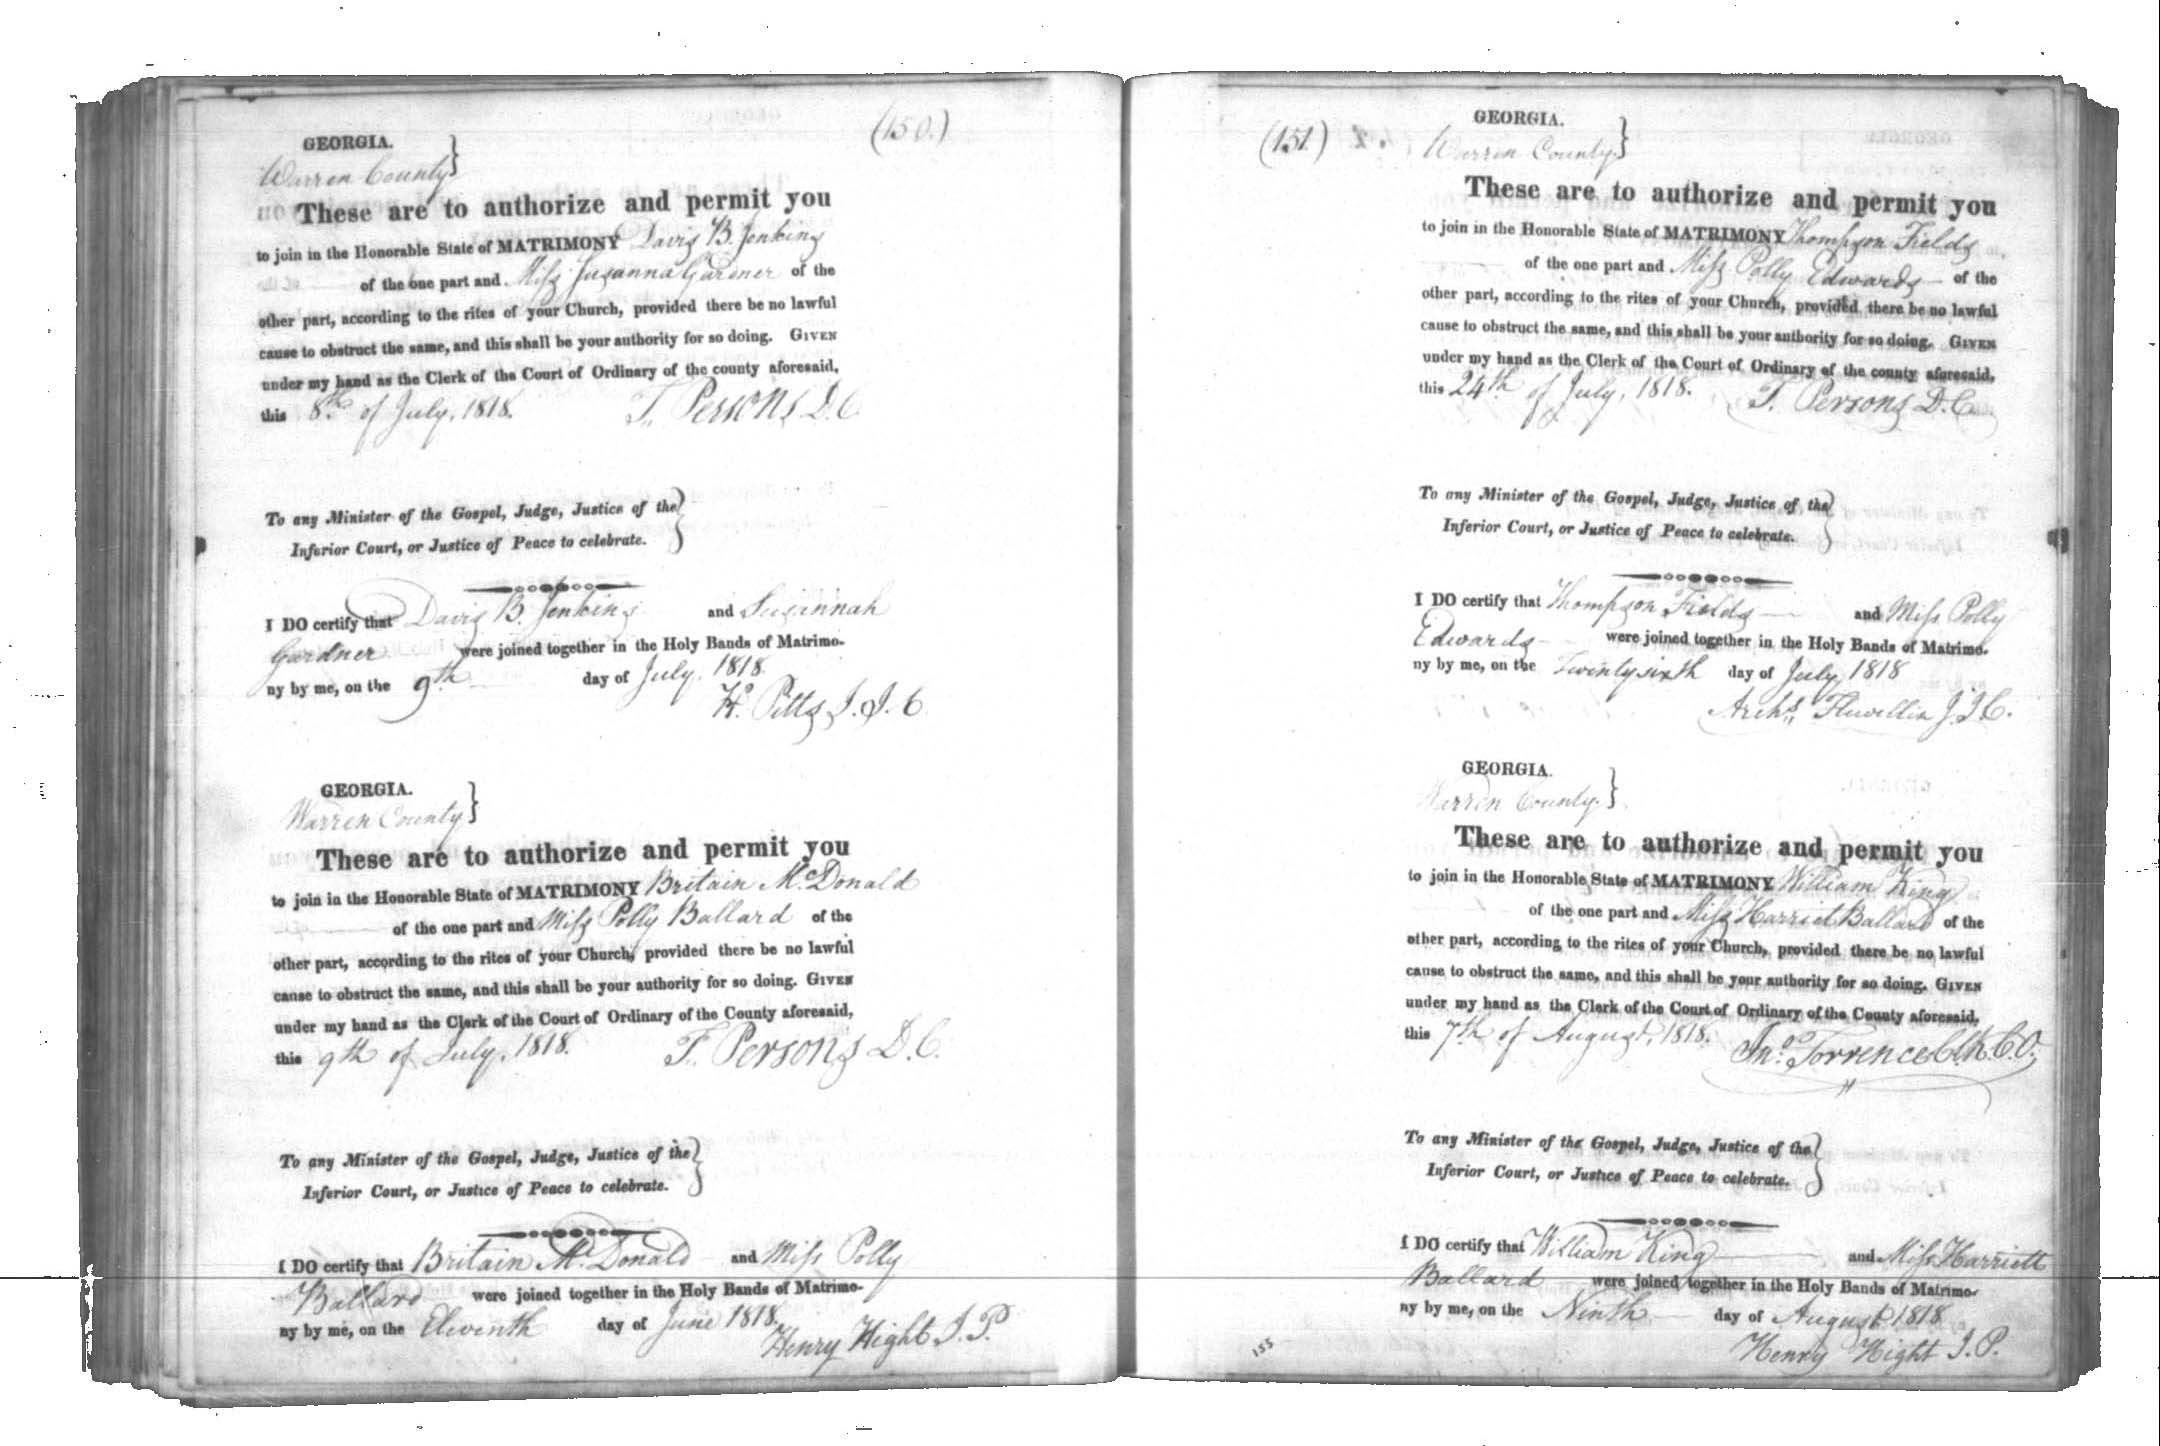 (150.)
GEORGIA.
Warren County
These are to authorize and permit you
to join in the Honorable State of MATRIMONY Davis B. Jenkins
of the one part and Miss Susanna Gardner of the
other part, according to the rites of your Church, provided there be no lawful
cause to obstruct the same, and this shall be your authority for so doing. GIVEN
under my hand as the Clerk of the Court of Ordinary of the county aforesaid,
this 8th of July, 1818. T. Persons D.C.
To any Minister of the Gospel, Judge, Justice of the
Inferior Court, or Justice of Peace to celebrate.
I DO certify that Davis B. Jenkins and Susannah
Gardner were joined together in the Holy Bands of Matrimo-
ny by me, on the 9th day of July 1818.
H. Pitts J.I.C
GEORGIA.
Warren County
These are to authorize and permit you
to join in the Honorable State of MATRIMONY Britain McDonald
of the one part and Miss Polly Ballard of the
other part, according to the rites of your Church, provided there be no lawful
cause to obstruct the same, and this shall be your authority for so doing. GIVEN
under my hand as the Clerk of the Court of Ordinary of the County aforesaid,
this 9th of July, 1818. T. Persons D.C.
To any Minister of the Gospel, Judge, Justice of the
Inferior Court, or Justice of Peace to celebrate.
I DO certify that Britain McDonald and Miss Polly
Ballard were joined together in the Holy Bands of Matrimo-
ny by me, on the Eleventh day of June 1818.
Henry Hight J.P.
(151)
GEORGIA.
Warren County.
These are to authorize and permit you
to join in the Honorable State of MATRIMONY Thompson Fields
of the one part and Miss Polly Edwards of the
other part, according to the rites of your Church, provided there be no lawful
cause to obstruct the same, and this shall be your authority for so doing. GIVEN
under my hand as the Clerk of the Court of Ordinary of the county aforesaid,
this 24th of July, 1818. T. Persons D.C.
To any Minister of the Gospel, Judge, Justice of the
Inferior Court, or Justice of Peace to celebrate.
I DO certify that Thompson Fields and Miss Polly
Edwards were joined together in the Holy Bands of Matrimo-
ny by me, on the Twenty sixth day of July 1818
Archs. Flewellin J.I.C.
GEORGIA.
Warren County.
These are to authorize and permit you
to join in the Honorable State of MATRIMONY William King
of the one part and Miss Harriet Ballard of the
other part, according to the rites of your Church, provided there be no lawful
cause to obstruct the same, and this shall be your authority for so doing. GIVEN
under my hand as the Clerk of the Court of Ordinary of the County aforesaid,
this 7th of August, 1818. Jno. Torrence Clk. C.O.
To any Minister of the Gospel, Judge, Justice of the
Inferior Court, or Justice of Peace to celebrate.
I DO certify that William King and Miss Harriett
Ballard were joined together in the Holy Bands of Matrimo-
ny by me, on the Ninth day of August 1818
Henry Hight J.P.
155